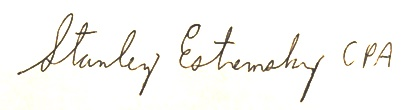 Stanley Estremsky CPA